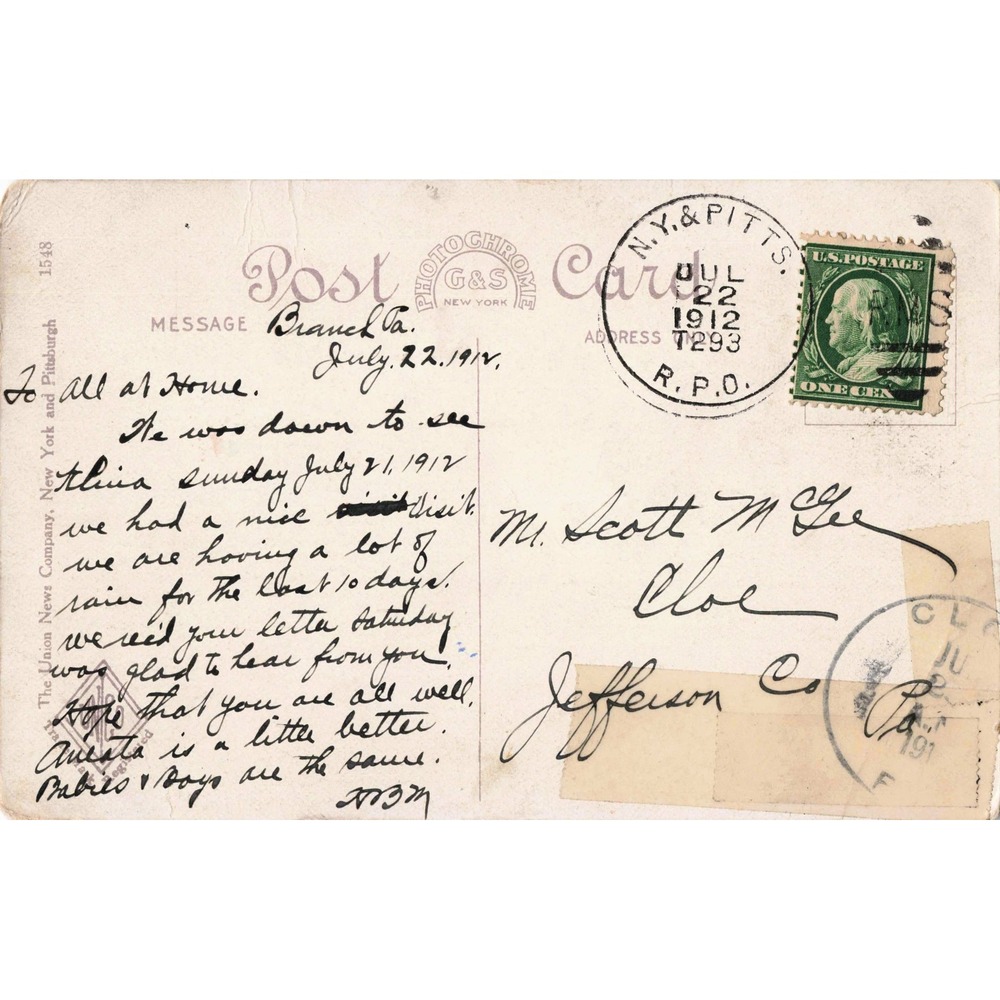 1548
The Union News Company, New York and Pittsburgh
Post Card
PHOTOCHROME
G&S
NEW YORK
MESSAGE
ADDRESS ONLY
N.Y.&PITTS.
JUL
22
1912
T293
R.P.O.
U.S.POSTAGE
ONE CEN
Branch Pa.
July. 22. 1912.
To All at Home.
We was down to see
Sunday July 21, 1912
we had a nice visit visit.
we are having a lot of
rain for the last 10 days.
we rec'd your letter Saturday
was glad to hear from you.
Hope that you are all well.
is a little better.
Babies & Boys are the same.
HBM
Mr. Scott McGee
Cloe
Jefferson Co Pa.
CLO
JU
191